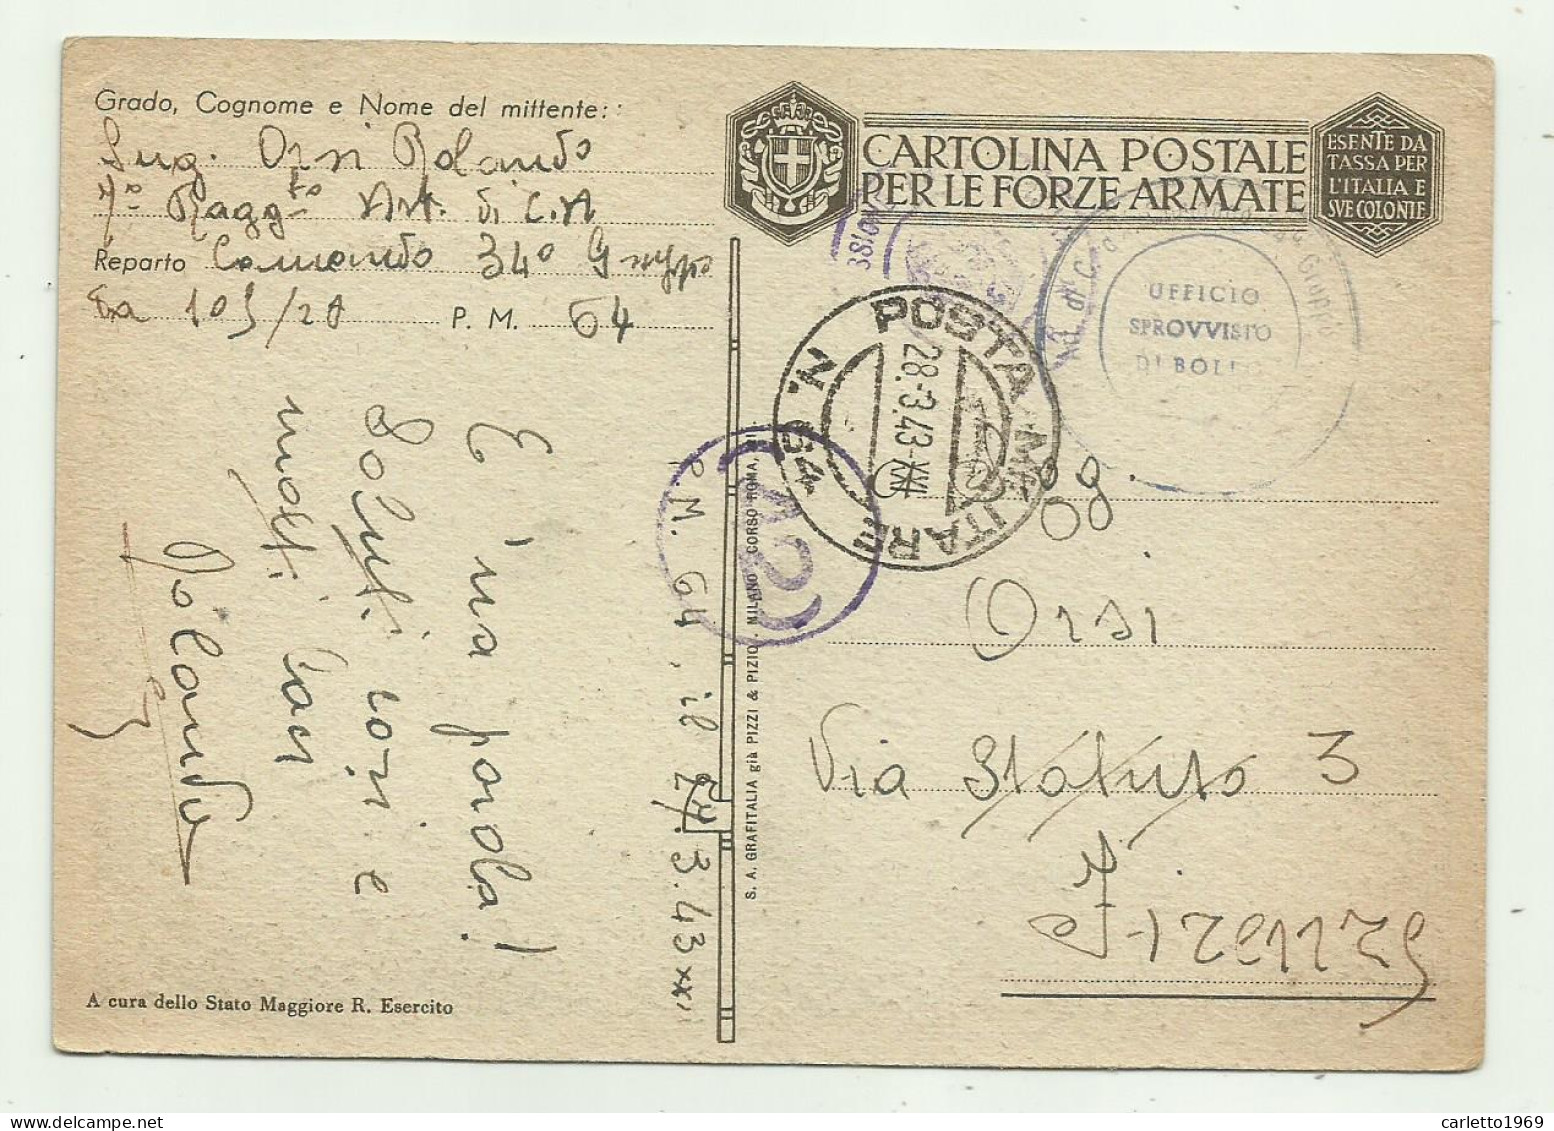 Grado, Cognome e Nome del mittente:
Orsi Rolando
7° Ragg.to Art. di C.A
Reparto Comando 34° Gruppo
da 105/28 P. M. 64
CARTOLINA POSTALE
PER LE FORZE ARMATE
ESENTE DA
TASSA PER
L'ITALIA E
SVE COLONIE
UFFICIO
SPROVVISTO
DI BOLLO
POSTA MILITARE
N. 64
28.3.43-XXI
P.M. 64, il 27.3.43 XXI
E' una parola!
Saluti cari e
molti baci
Rolando
Orsi
Via Statuto 3
Firenze
S. A. GRAFITALIA già PIZZI & PIZIO - MILANO CORSO ROMA,
A cura dello Stato Maggiore R. Esercito
carletto1969